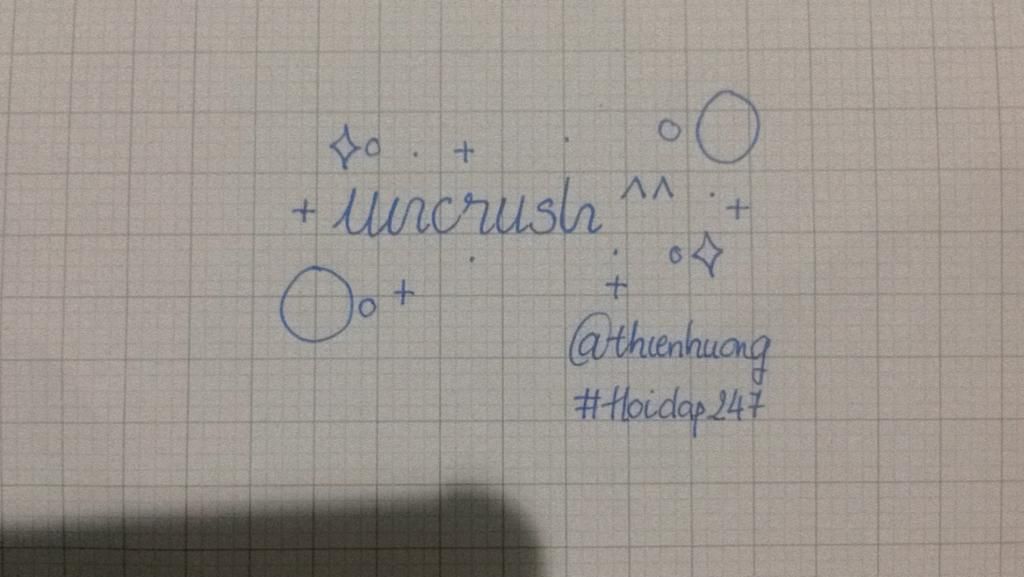 uncrush ^^
@thienhuong
#Hoidap247